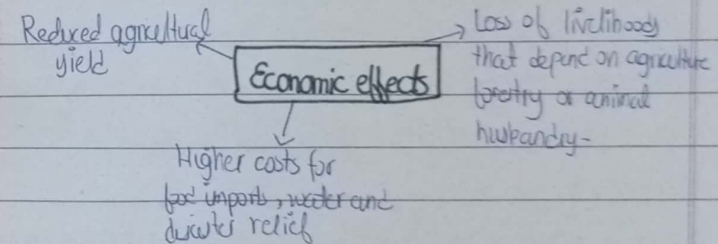 Reduced agricultural
yield
Economic effects
Loss of livelihoods
that depend on agriculture
forestry or animal
husbandry-
Higher costs for
food imports, water and
disaster relief